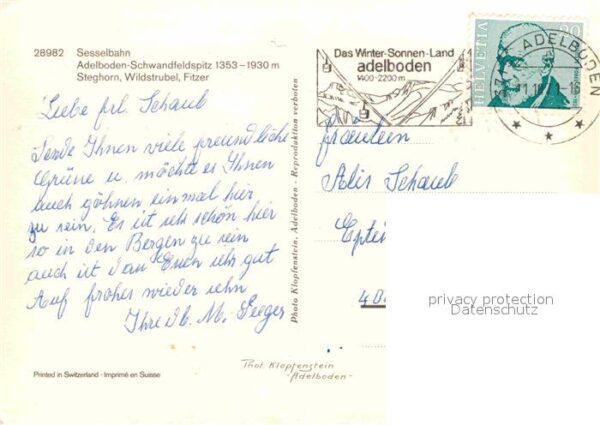 28982 Sesselbahn
Adelboden-Schwandfeldspitz 1353–1930 m
Steghorn, Wildstrubel, Fitzer
Liebe frl. Schaub
Sende Ihnen viele freundliche
Grüne u. möchte es Ihnen
auch göhnen einmal hier
zu sein. Es ist sehr schön hier
so in den Bergen zu sein
auch ist das Essen sehr gut
Auf frohes wieder sehn
Ihre M. Seeger
Printed in Switzerland - Imprimé en Suisse
Photo Klopfenstein, Adelboden - Reproduktion verboten
Phot. Klopfenstein
- Adelboden -
Das Winter-Sonnen-Land
adelboden
1400-2200 m
HELVETIA
ADELBODEN
Fräulein
Schaub
privacy protection
Datenschutz